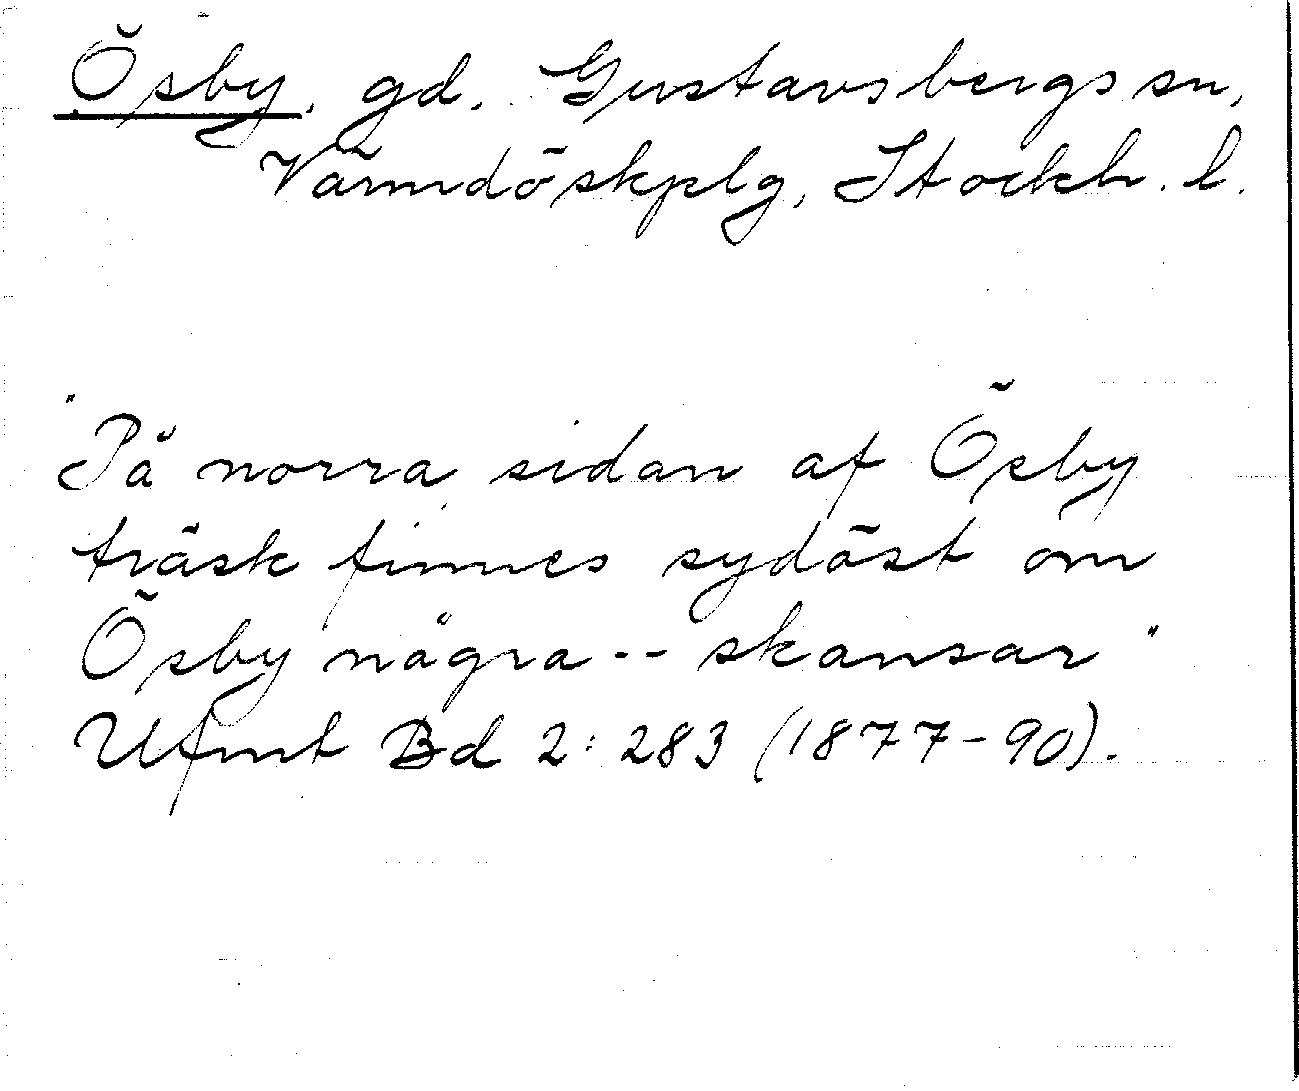 Ösby, gd, Gustavsbergs sn,
Värmdöskplg, Stockh. l.
"På norra sidan af Ösby
träsk finnes sydöst om
Ösby några -- skansar"
Ufmt Bd 2: 283 (1877-90).